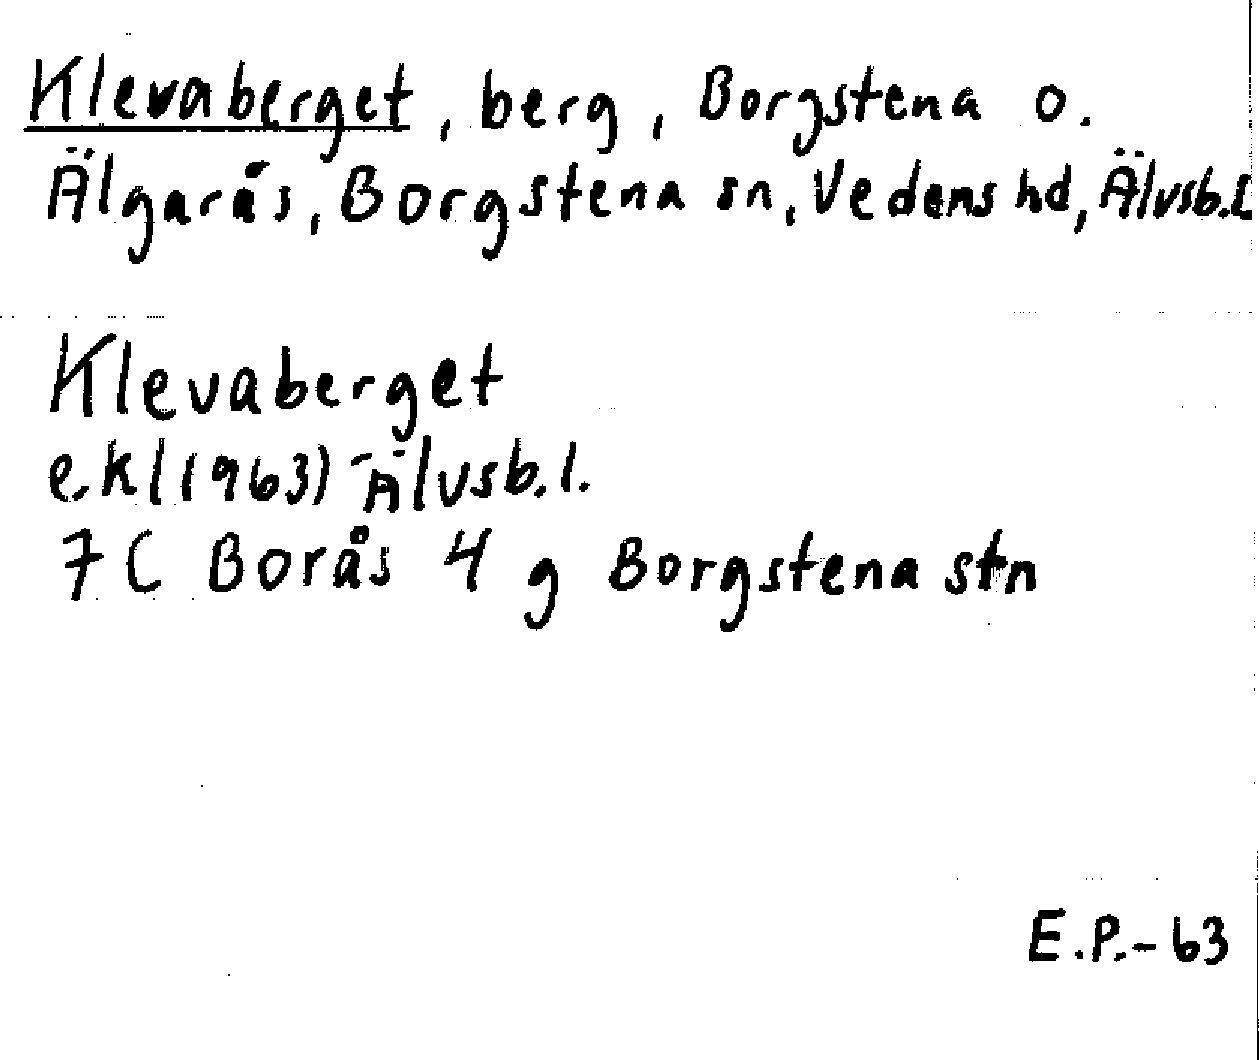 Klevaberget, berg, Borgstena o.
Älgarås, Borgstena sn, Vedens hd, Älvsb.l
Klevaberget
e.k(1963) Älvsb.l.
7C Borås 4 g Borgstena stn
E.P.-63